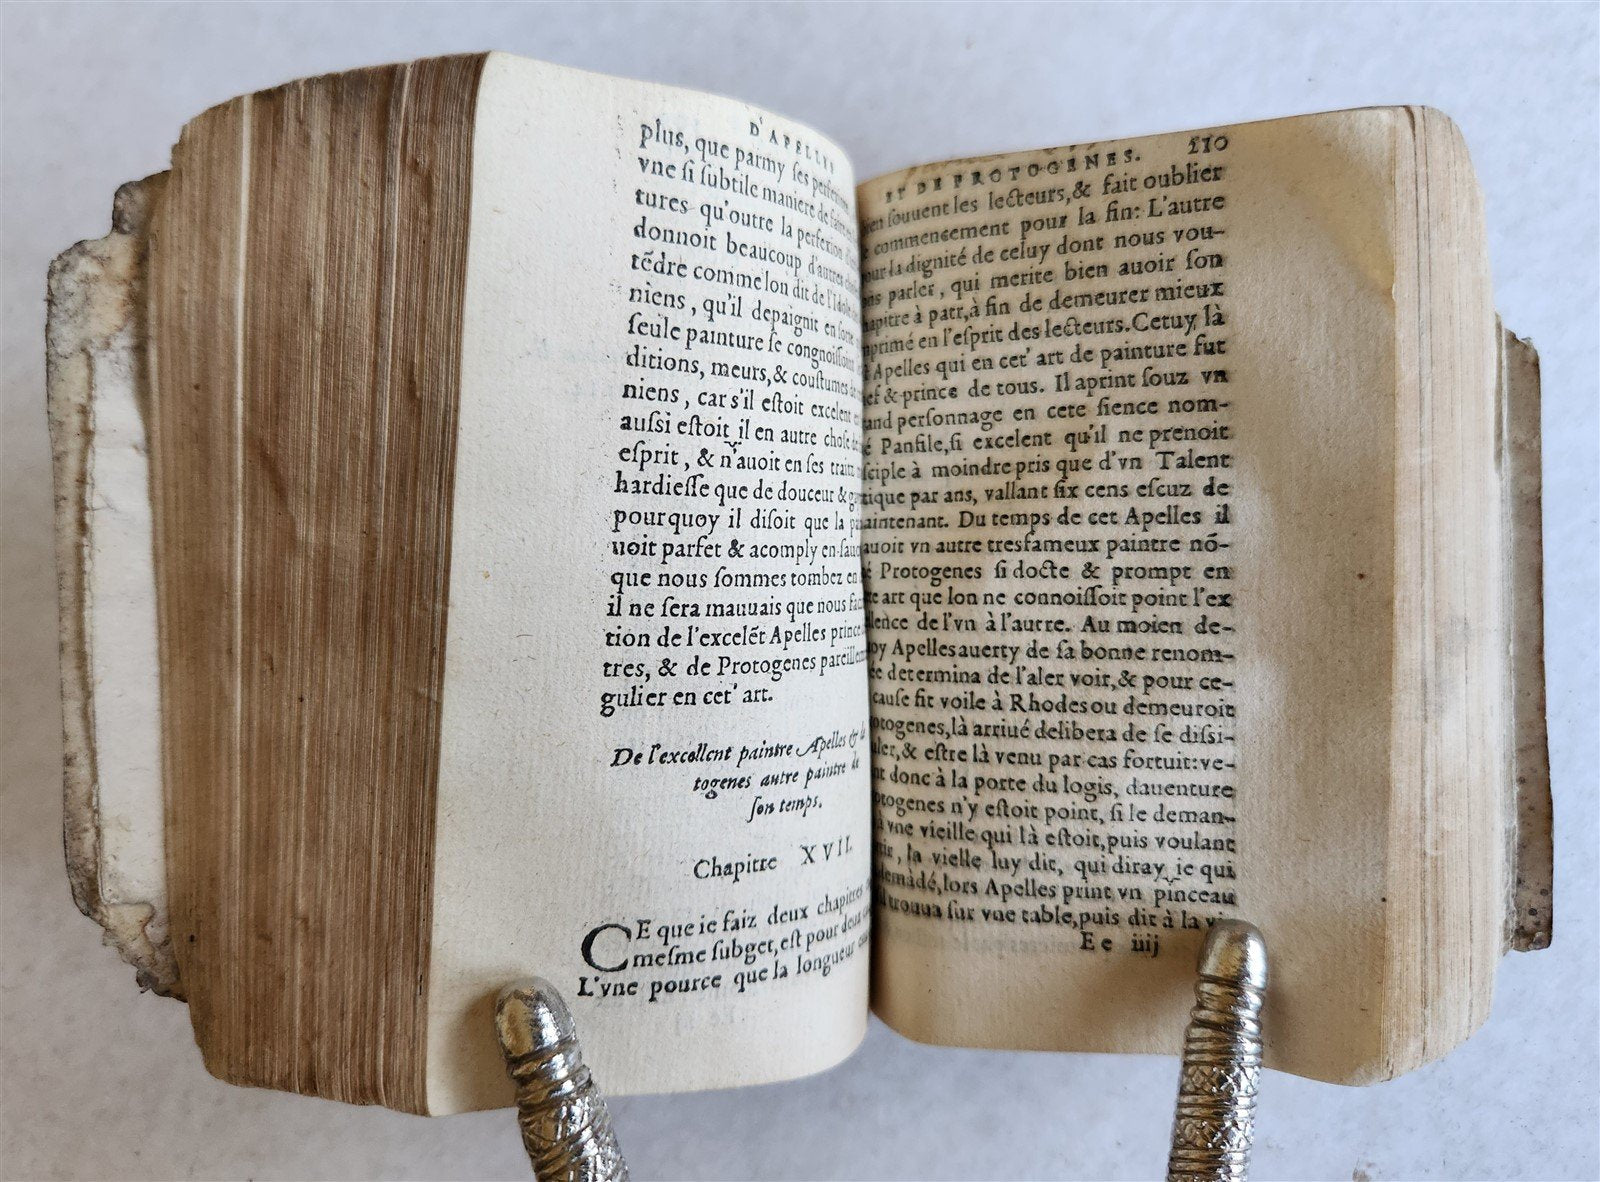 D'APELLES
plus, que parmy ses
vne si subtile maniere de
tures qu'outre la perfexion
donnoit beaucoup d'autres
tẽdre comme lon dit de l'Idole
niens, qu'il depaignit en sorte
seule painture se
ditions, meurs, & coustumes
niens, car s'il estoit excelent
aussi estoit il en autre chose
esprit, & n'auoit en ses traitz
hardiesse que de douceur &
pourquoy il disoit que la
uoit parfet & acomply en
que nous sommes tombez en
il ne sera mauuais que nous
tion de l'excelẽt Apelles prince
tres, & de Protogenes
gulier en cet' art.
De l'excellent paintre Apelles & de
togenes autre paintre de
son temps.
Chapitre XVII.
CE que ie faiz deux chapitres
mesme subget, est pour deux
L'vne pource que la longueur
ET DE PROTOGENES. 210
souuent les lecteurs, & fait oublier
commencement pour la fin: L'autre
la dignité de celuy dont nous vou-
parler, qui merite bien auoir son
à part, à fin de demeurer mieux
en l'esprit des lecteurs. Cetuy là
Apelles qui en cet' art de painture fut
& prince de tous. Il aprint souz vn
personnage en cete sience nom-
Panfile, si excelent qu'il ne prenoit
à moindre pris que d'vn Talent
par ans, vallant six cens escuz de
Du temps de cet Apelles il
vn autre tresfameux paintre nõ-
Protogenes si docte & prompt en
art que lon ne connoissoit point l'ex
de l'vn à l'autre. Au moien de-
Apelles auerty de sa bonne renom-
determina de l'aler voir, & pour ce-
cause fit voile à Rhodes ou demeuroit
là arriué delibera de se dissi-
& estre là venu par cas fortuit: ve-
donc à la porte du logis, dauenture
n'y estoit point, si le deman-
vne vieille qui là estoit, puis voulant
la vielle luy dit, qui diray ie qui
lors Apelles print vn pinceau
trouua sur vne table, puis dit à la
Ee iiij